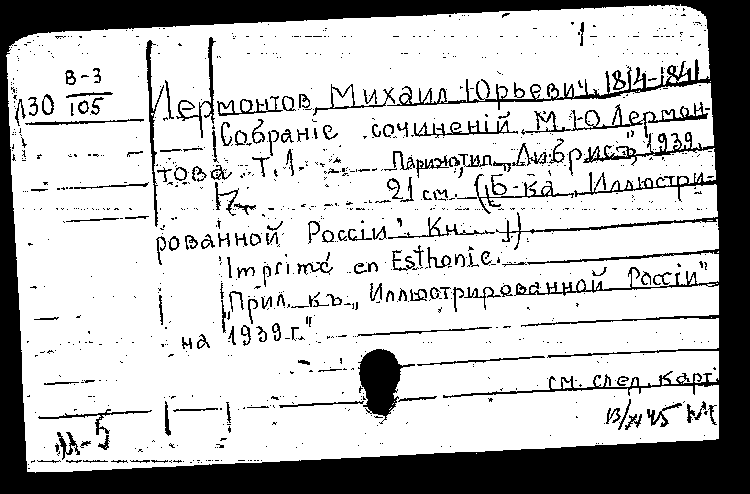 1
В-3
130 105
Лермонтов, Михаил Юрьевич, 1814-1841
Собраніе сочиненій М.Ю.Лермон-
това. Т.1. Париж, тип. „Либрисъ", 1939.
21 см. (Б-ка „Иллюстри-
рованной Россіи". Кн. 1).
Imprimé en Esthonie.
„Прил. къ „Иллюстрированной Россіи"
на 1939 г."
см. след. карт.
М-5